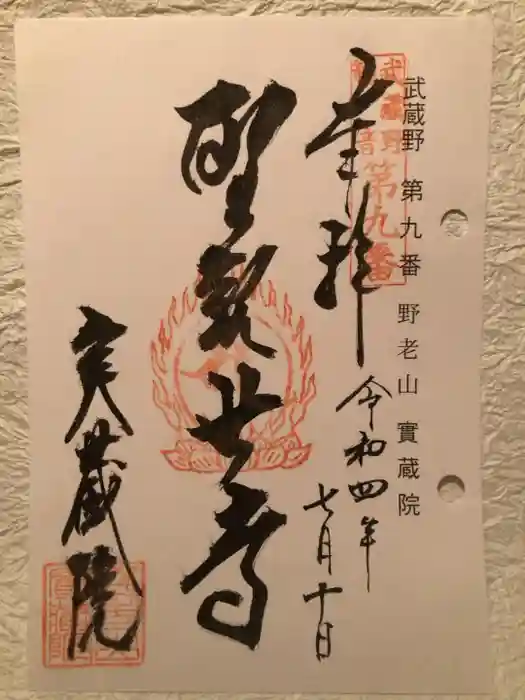 武蔵野 第九番 野老山 實蔵院
第九番
奉拝
令和四年
七月十日
聖観世音
実蔵院